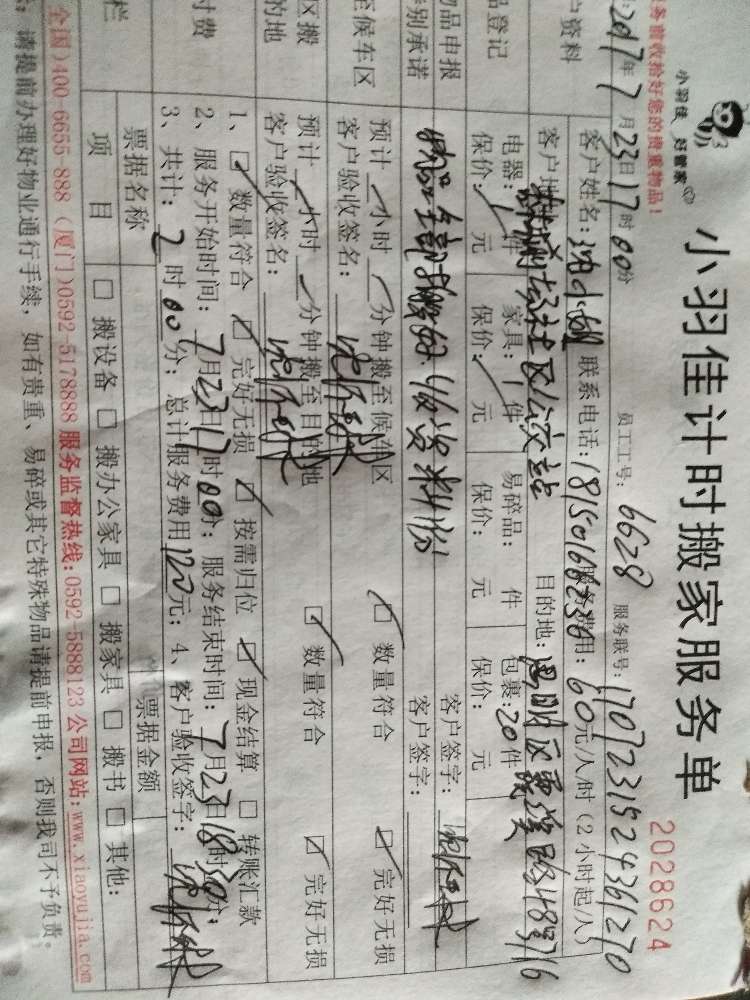 小羽佳计时搬家服务单
2028624
小羽佳 好管家
务前收拾好您的贵重物品!
2017年7月23日17时00分 员工工号: 6628 服务联号: 1707231524361270
户资料 客户姓名: 联系电话: 18150166236 服务费用: 60元/人/时 (2小时起/人)
客户地 目的地:
品登记 电器: 1件 家具: 1件 易碎品: 件 包裹: 20件
保价: 元 保价: 元 保价: 元 保价: 元
品申报
特别承诺 客户签字:
客户签字:
至候车区 预计 小时 分钟搬至候车区 数量符合 完好无损
客户验收签名:
区搬
的地 预计 小时 分钟搬至目的地 数量符合 完好无损
客户验收签名:
1、 数量符合 完好无损 按需归位 现金结算 转账汇款
付费 2、服务开始时间: 7月23日17时00分; 服务结束时间: 7月23日18时30分;
3、共计: 2时00分; 总计服务费用120元; 4、客户验收签字:
栏 票据名称 票据金额
项目 搬设备 搬办公家具 搬家具 搬书 其他:
全国)400-6655 888 (厦门)0592-5178888 服务监督热线:0592-5888123 公司网站:www.xiaoyujia.com
请提前办理好物业通行手续, 如有贵重、易碎或其它特殊物品请提前申报, 否则我司不予负责。